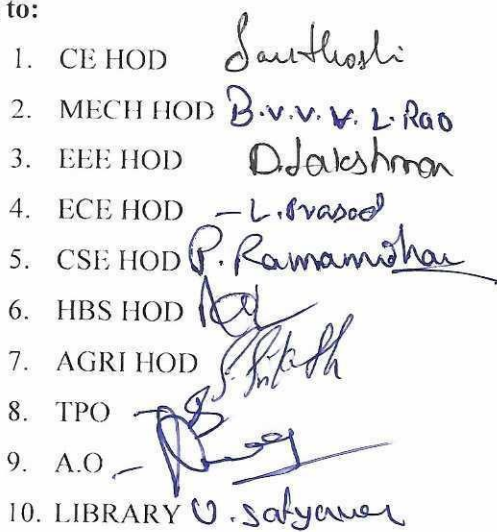 to:
1. CE HOD Santhoshi
2. MECH HOD B.V.V.V.L. Rao
3. EEE HOD D. Lakshman
4. ECE HOD - L. Prasad
5. CSE HOD P. Ramamohan
6. HBS HOD
7. AGRI HOD
8. TPO
9. A.O -
10. LIBRARY